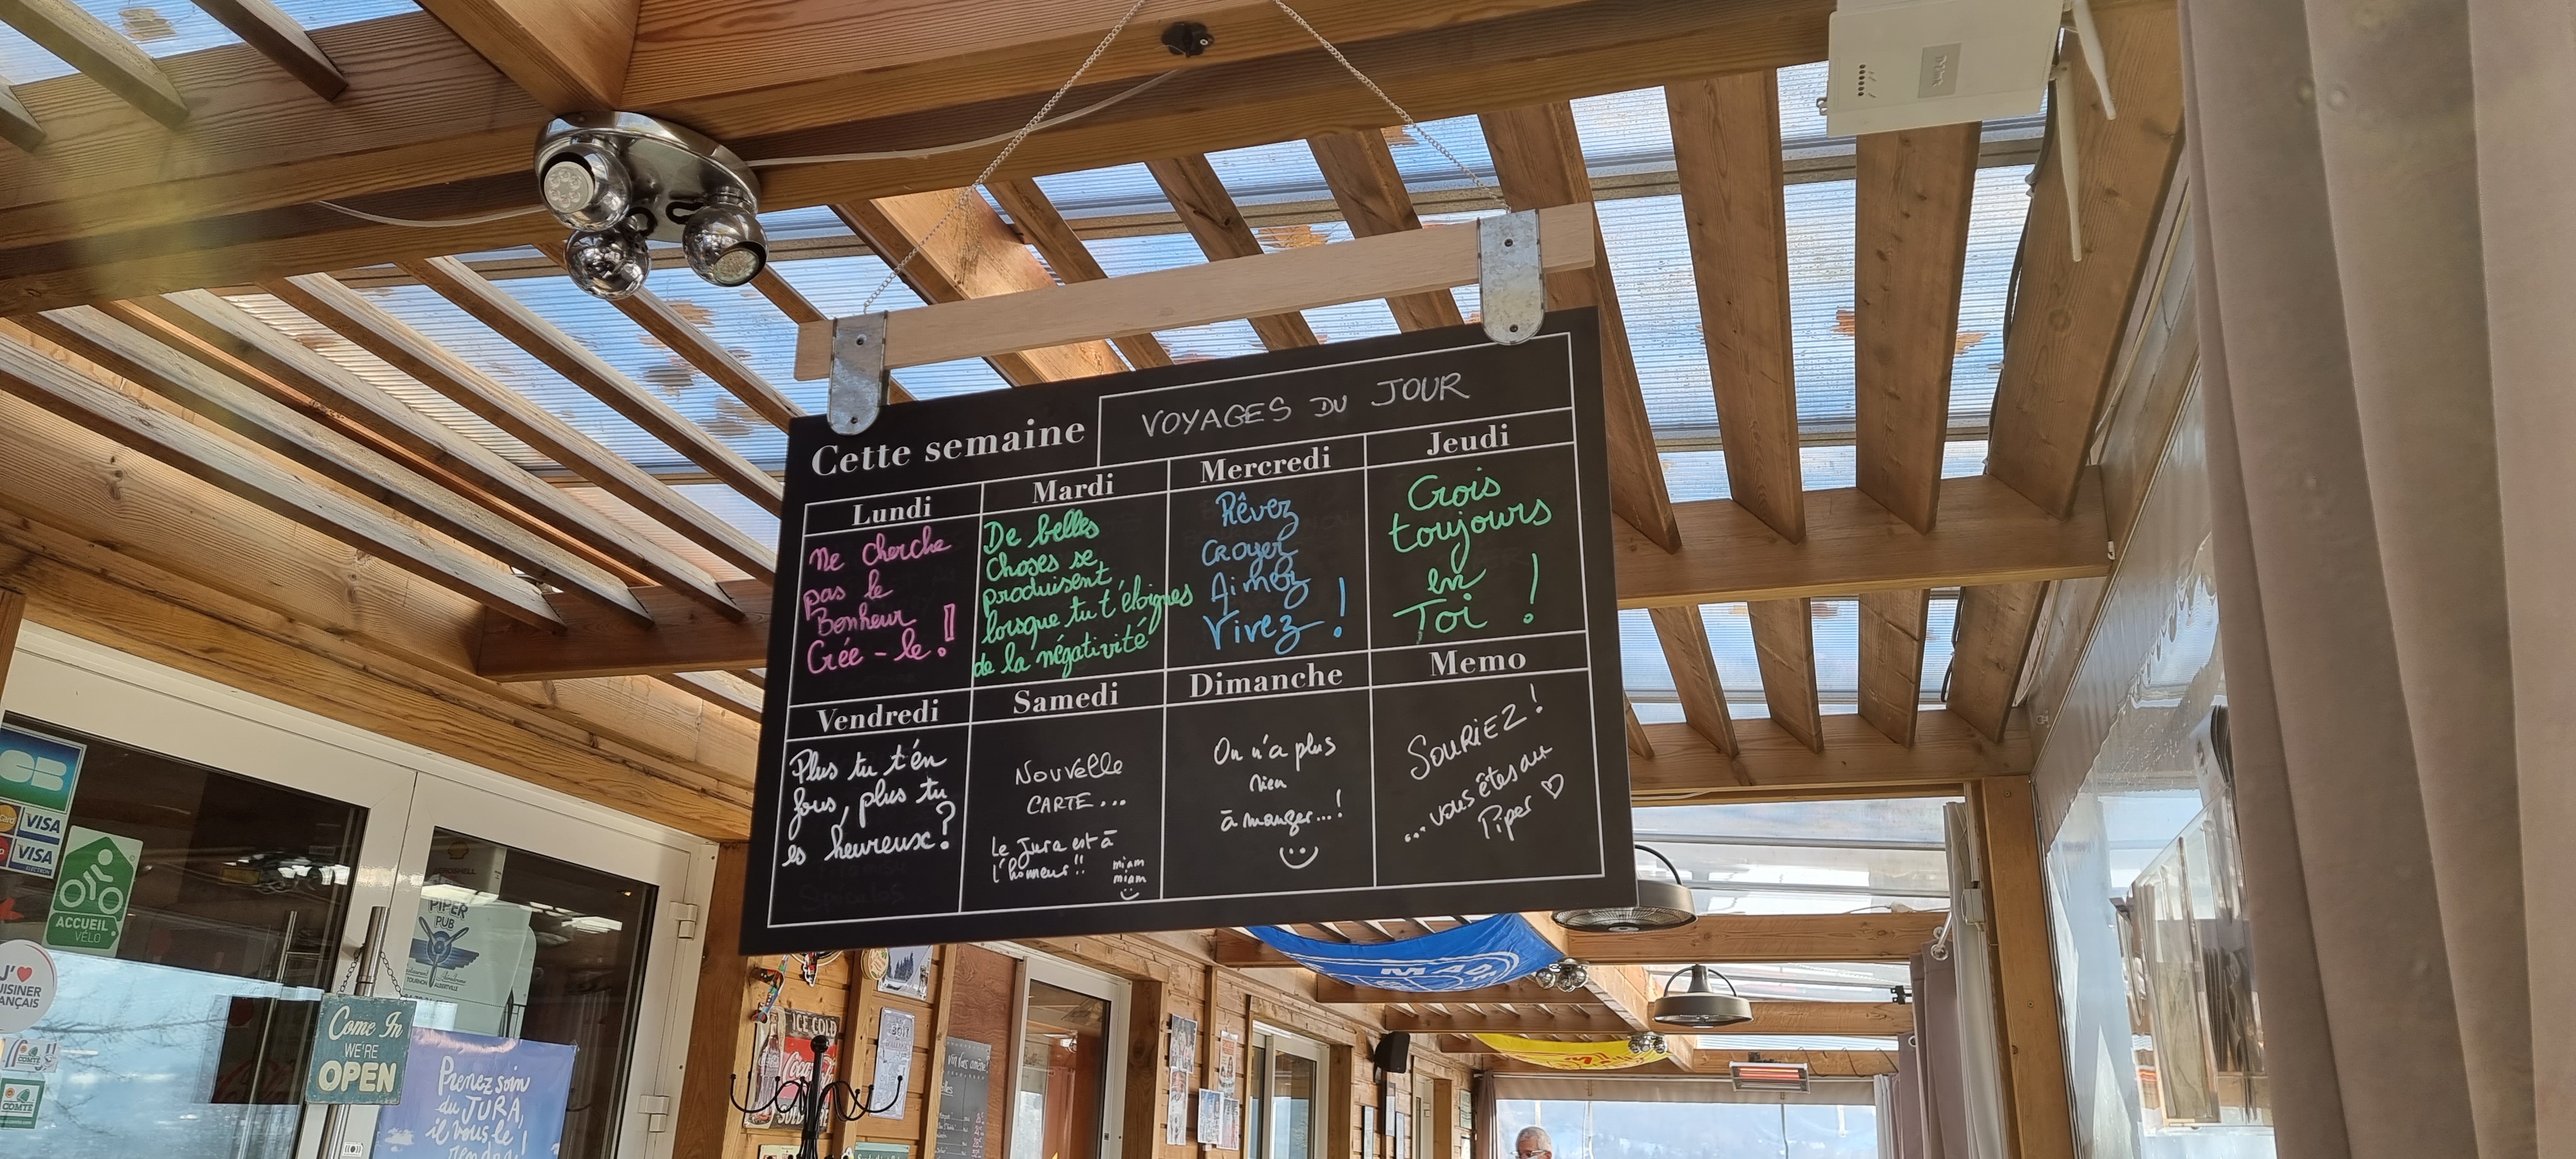 Cette semaine
VOYAGES DU JOUR
Lundi
Ne cherche
pas le
Bonheur
Crée - le !
Mardi
De belles
Choses se
produisent
lorsque tu t'éloignes
de la négativité
Mercredi
Rêvez
Croyez
Aimez
Vivez !
Jeudi
Crois
toujours
en
Toi !
Vendredi
Plus tu t'en
fous, plus tu
es heureux ?
Samedi
NOUVELLE
CARTE...
Le Jura est à
l'honneur !!
miam
miam
Dimanche
On n'a plus
rien
à manger...!
Memo
SOURIEZ !
... vous êtes au
Piper
CB
VISA
VISA
ACCUEIL
VÉLO
J'
COMTÉ
COMTÉ
PIPER
PUB
TOURNON ALBERTVILLE
Come In
WE'RE
OPEN
Prenez soin
du JURA,
il vous le
ICE COLD